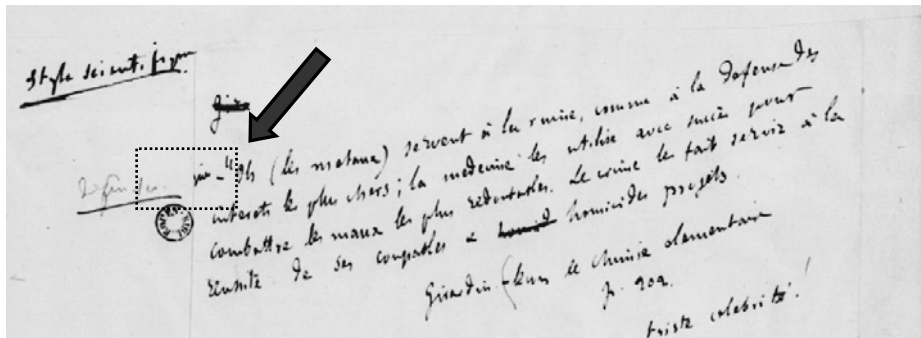 Style scientifique
Gira
"Ils (les metaux) servent à la ruine, comme à la defense des
interets les plus chers ; la medecine les utilise avec succès pour
combattre les maux les plus redoutables. Le crime les fait servir à la
reussite de ses coupables & homicid homicides projets.
Girardin - (leçons de chimie elementaire
p. 202.
triste celebrité !